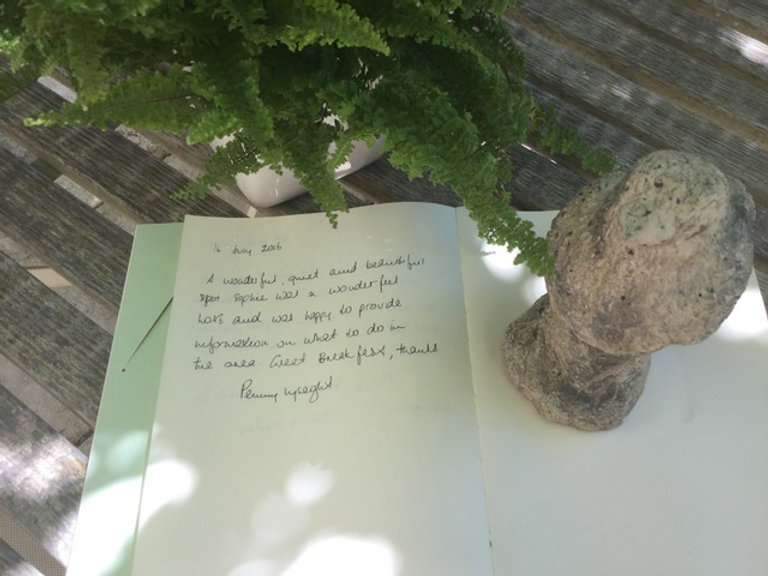 16 July 2016
A wonderful, quiet and beautiful
spot. Sophie was a wonderful
host and was happy to provide
information on what to do in
the area. Great Breakfast, thanks
Penny